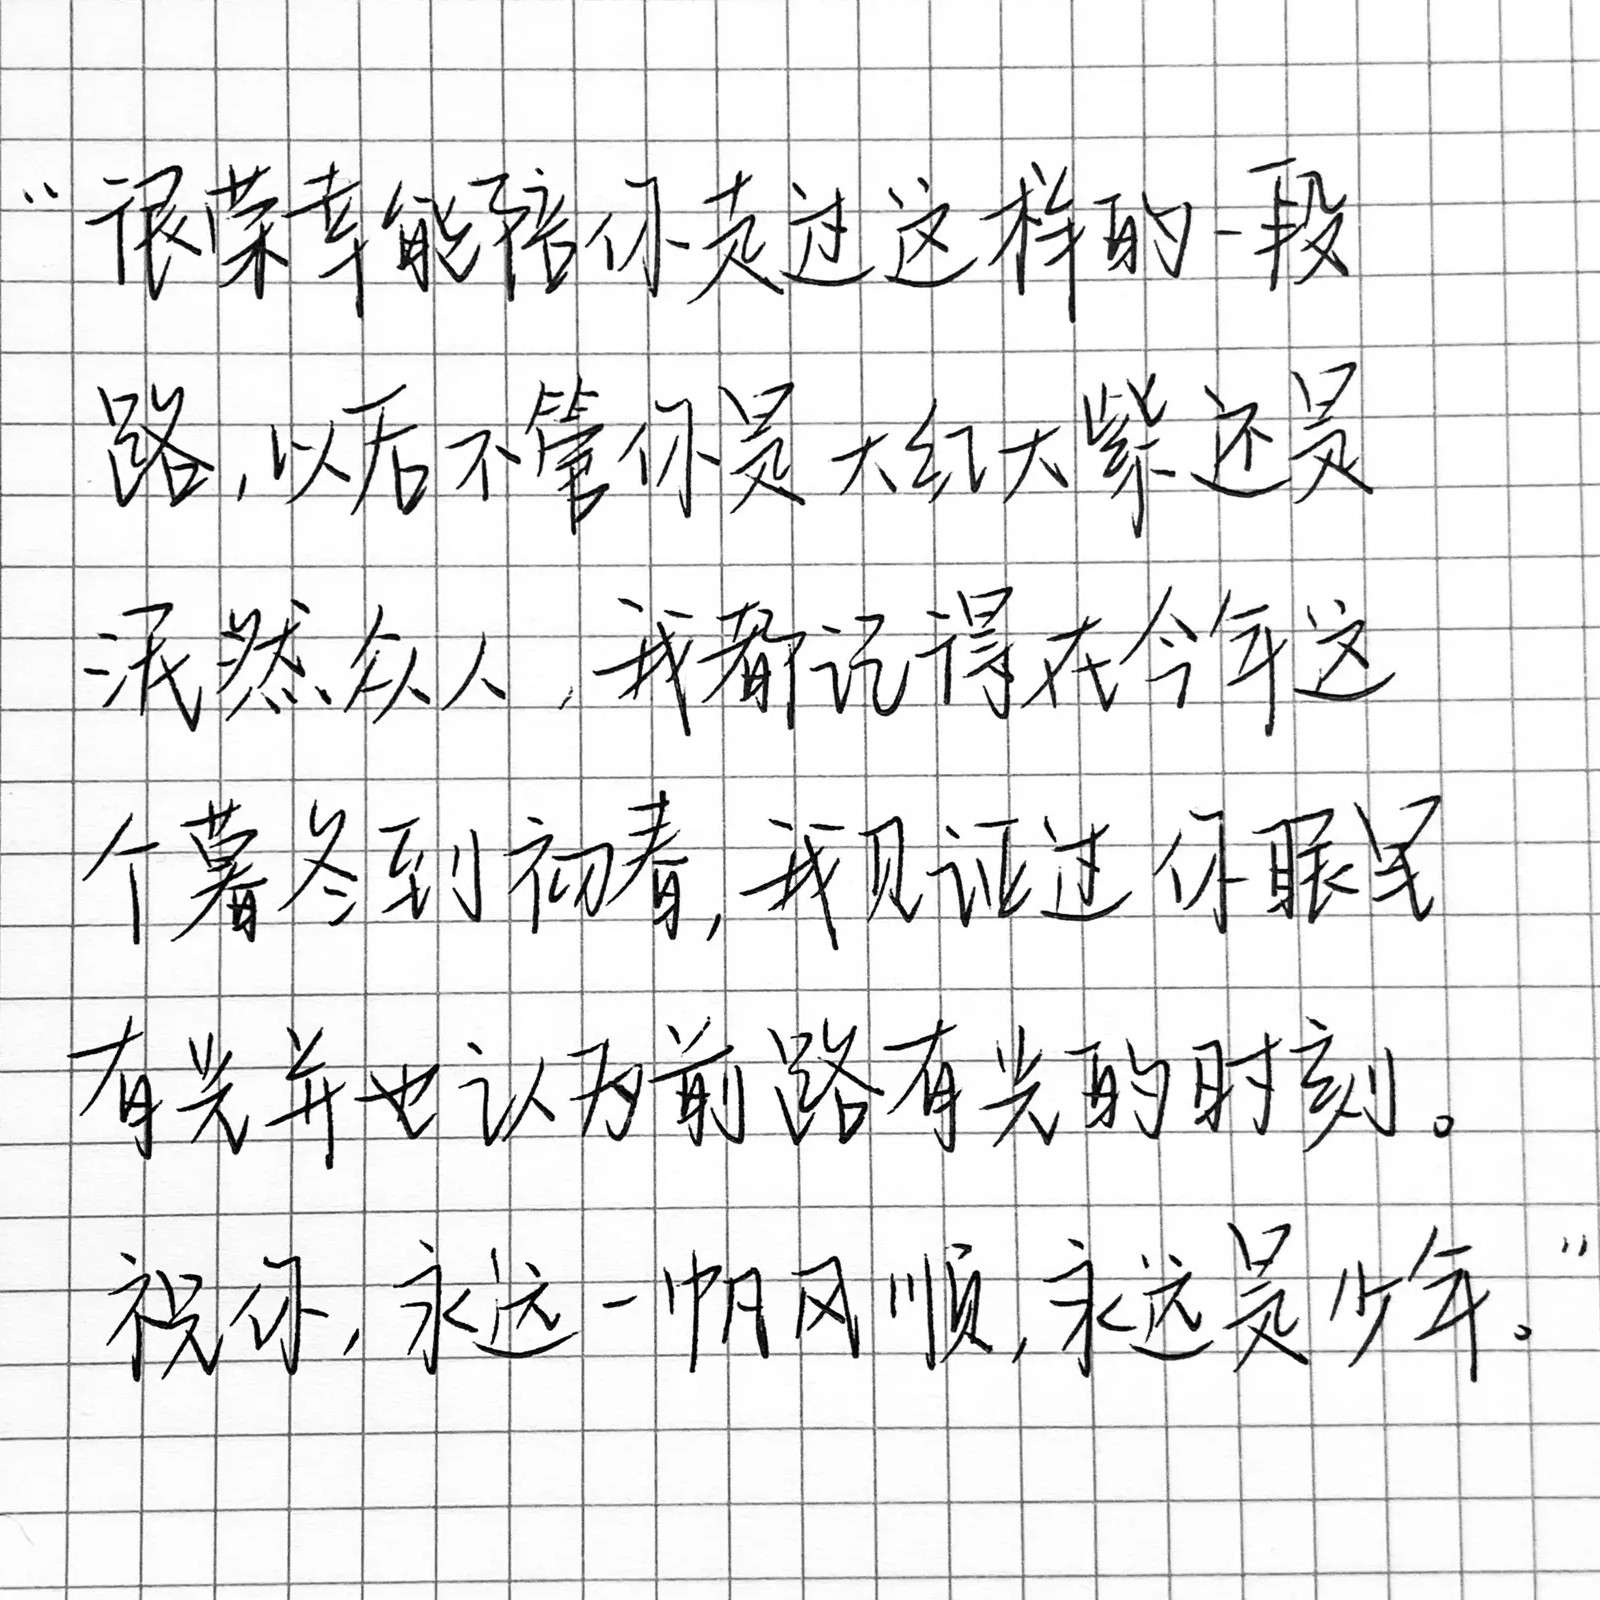 “很荣幸能陪你走过这样的一段
路,以后不管你是大红大紫还是
泯然众人,我都记得在今年这
个暮冬到初春,我见证过你眼里
有光并也认为前路有光的时刻。
祝你,永远一帆风顺,永远是少年。”